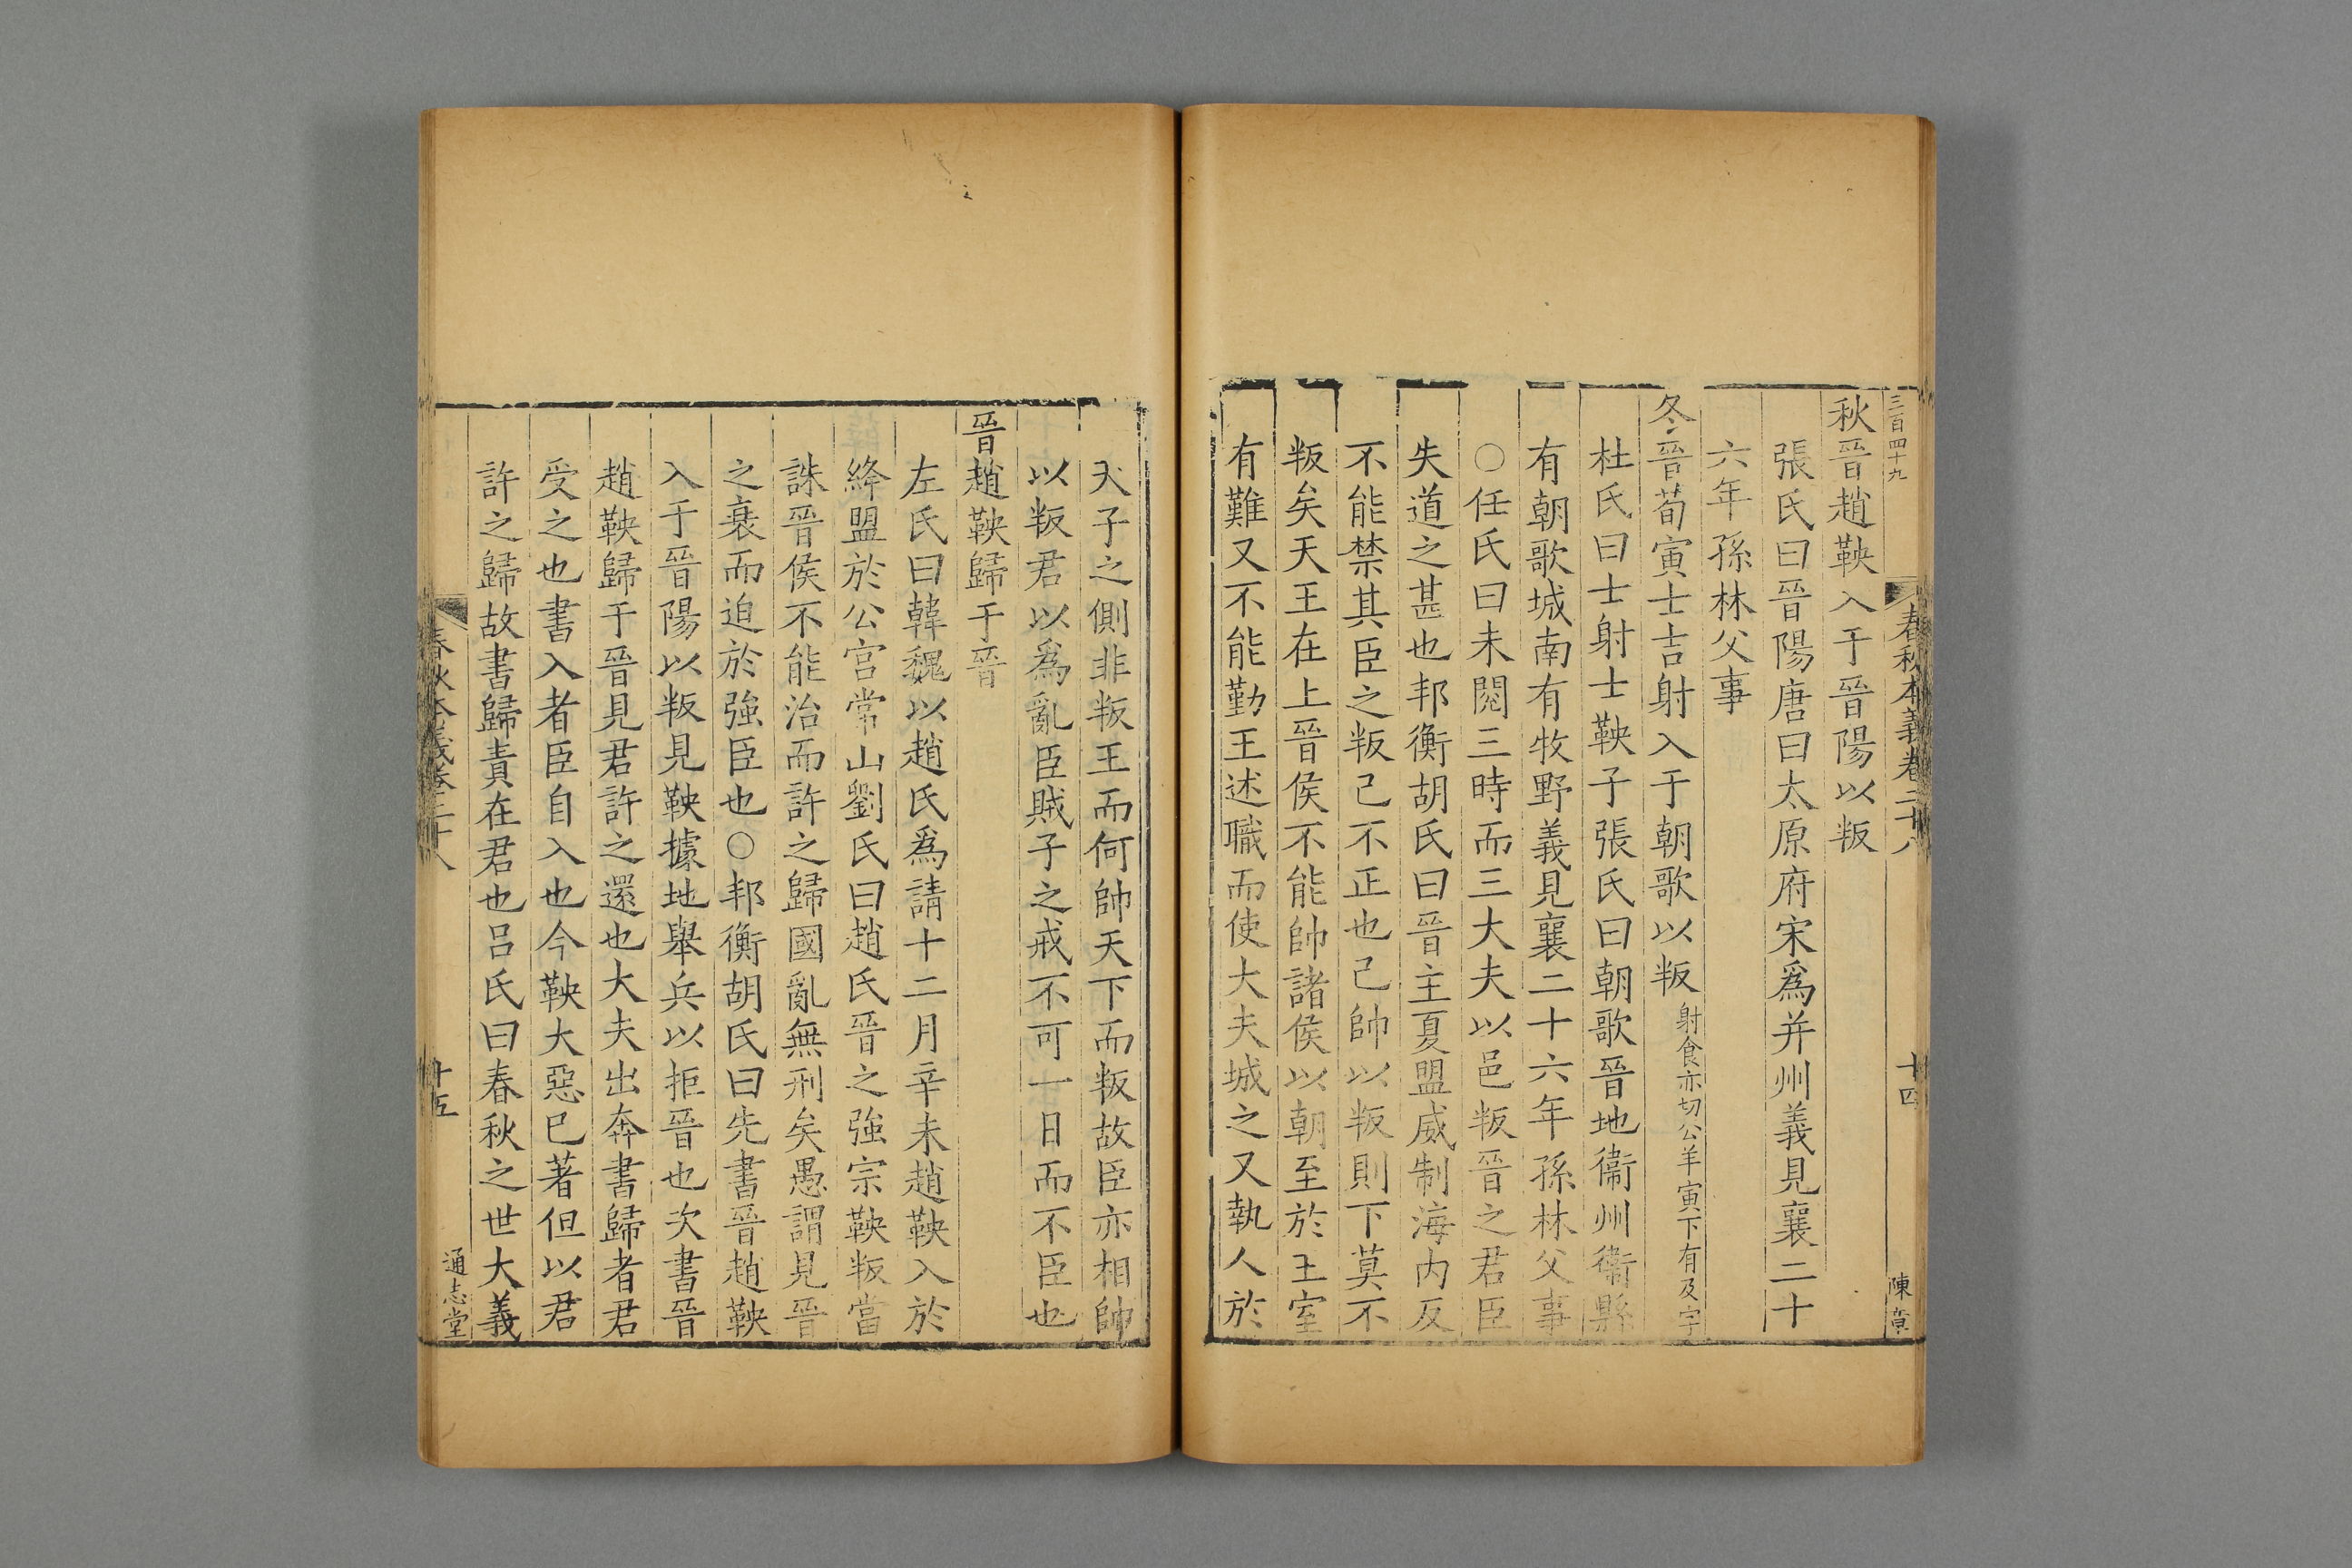 三百四十九
春秋本義卷二十八
十四
陳章
秋晉趙鞅入于晉陽以叛
張氏曰晉陽唐曰太原府宋爲并州義見襄二十
六年孫林父事
冬晉荀寅士吉射入于朝歌以叛射食亦切公羊寅下有及字
杜氏曰士射士鞅子張氏曰朝歌晉地衞州衞縣
有朝歌城南有牧野義見襄二十六年孫林父事
○任氏曰未閱三時而三大夫以邑叛晉之君臣
失道之甚也邦衡胡氏曰晉主夏盟威制海内反
不能禁其臣之叛己不正也己帥以叛則下莫不
叛矣天王在上晉侯不能帥諸侯以朝至於王室
有難又不能勤王述職而使大夫城之又執人於
天子之側非叛王而何帥天下而叛故臣亦相帥
以叛君以爲亂臣賊子之戒不可一日而不臣也
晉趙鞅歸于晉
左氏曰韓魏以趙氏爲請十二月辛未趙鞅入於
絳盟於公宫常山劉氏曰趙氏晉之強宗鞅叛當
誅晉侯不能治而許之歸國亂無刑矣愚謂見晉
之衰而迫於強臣也○邦衡胡氏曰先書晉趙鞅
入于晉陽以叛見鞅據地舉兵以拒晉也次書晉
趙鞅歸于晉見君許之還也大夫出奔書歸者君
受之也書入者臣自入也今鞅大惡已著但以君
許之歸故書歸責在君也呂氏曰春秋之世大義
春秋本義卷二十八
十五
通志堂